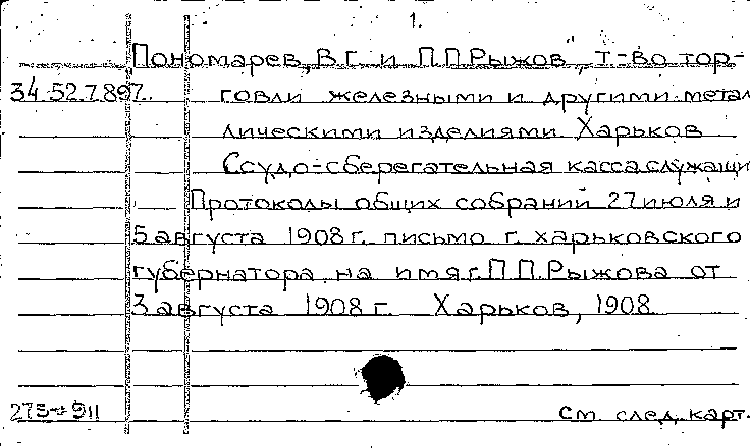 1.
Пономарев, В.Г. и П.П. Рыжов", т-во тор-
34.52.7.897. говли железными и другими метал
лическими изделиями. Харьков
Ссудо-сберегательная касса служащи
Протоколы общих собраний 27 июля и
5 августа 1908 г. письмо г. харьковского
губернатора на имя г. П.П. Рыжова от
3 августа 1908 г. Харьков, 1908
См. след. карт.